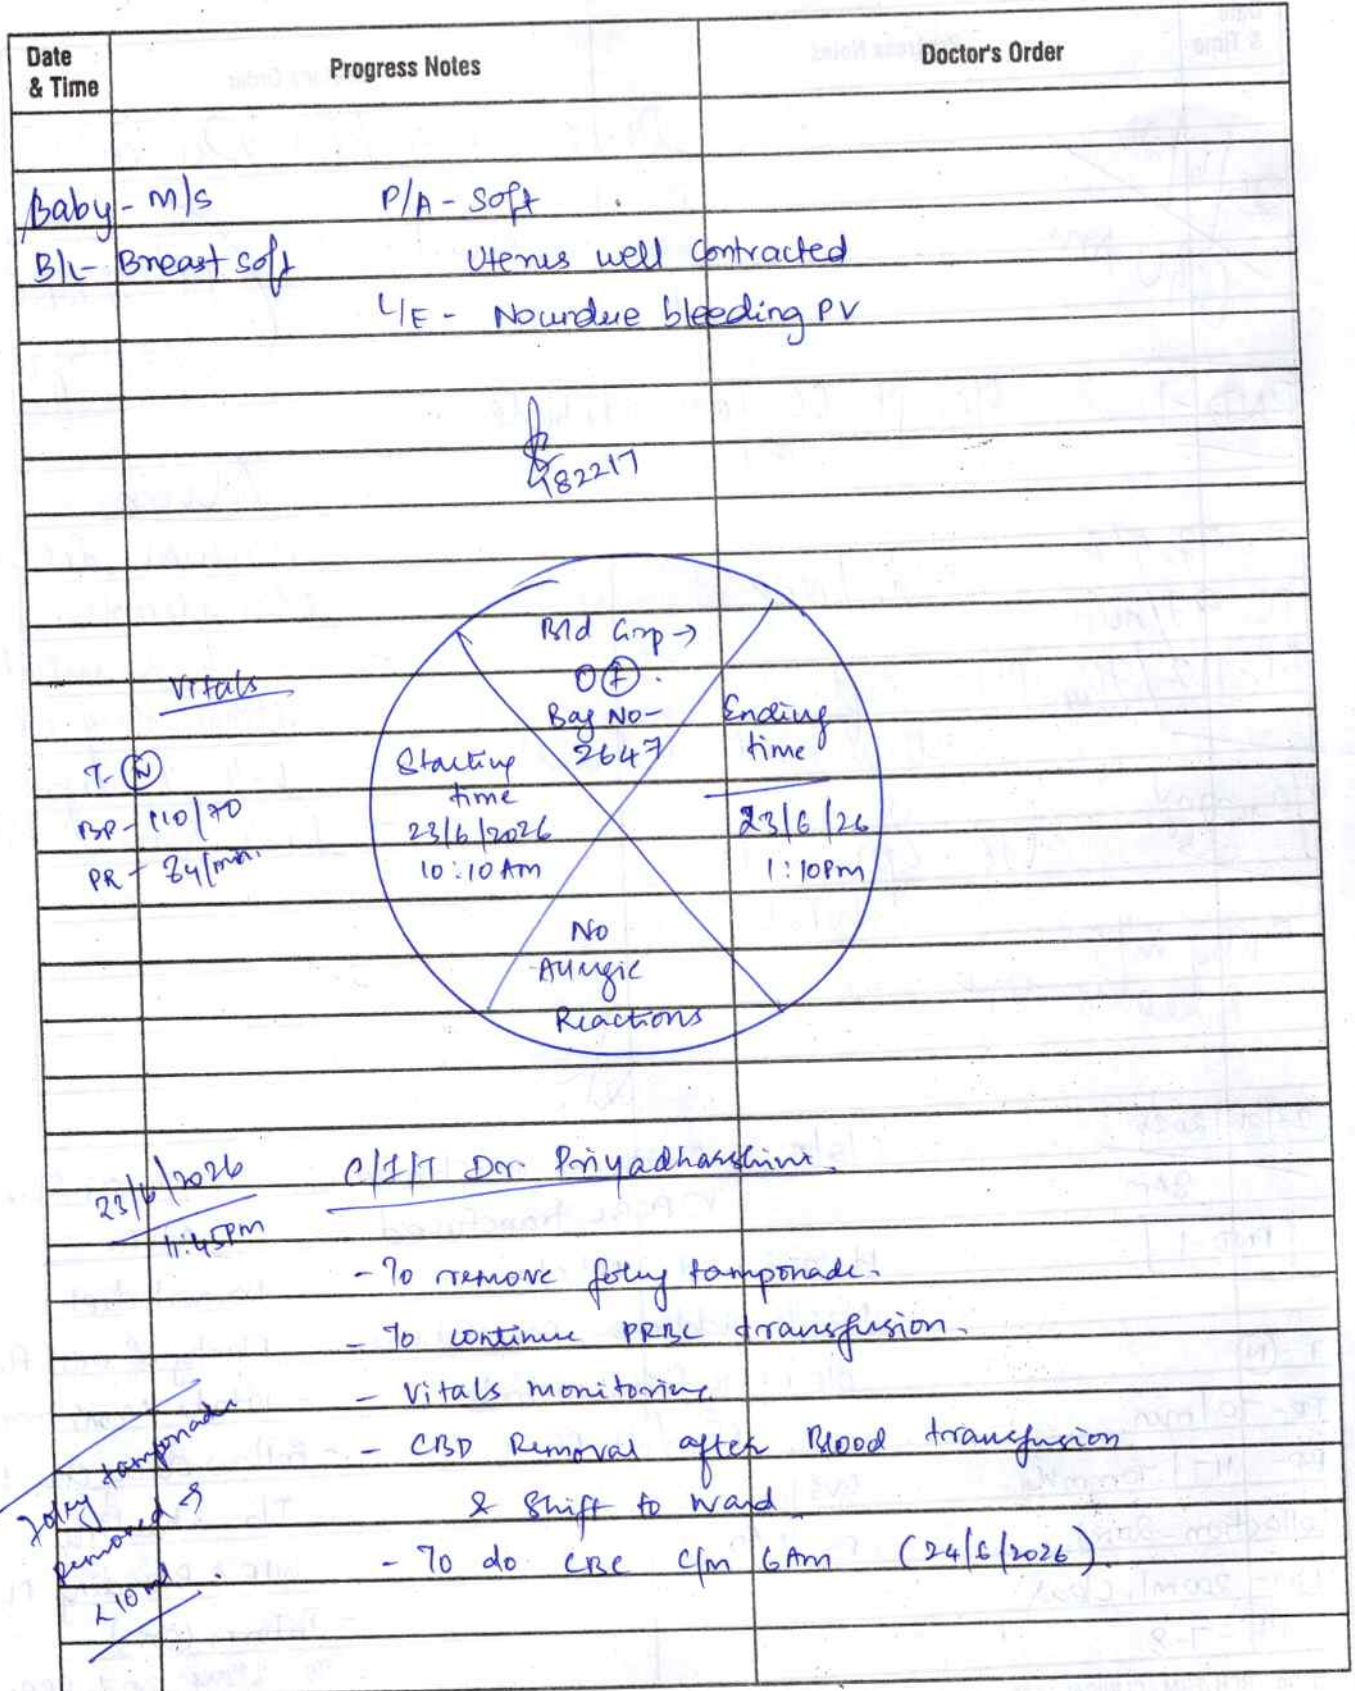 Date & Time
Progress Notes
Doctor's Order
Baby - M/S P/A - Soft
B/L - Breast soft Uterus well contracted
L/E - No undue bleeding PV
182217
Bld Grp →
O (+).
Bag No -
2647
Vitals
T - (N)
BP - 110/70
PR - 84/min.
Starting
time
23/6/2026
10:10 Am
Ending
time
23/6/26
1:10pm
No
Allergic
Reactions
23/6/2026
11:45pm
C/I/T Dr. Priyadharshini.
- To remove foley tamponade.
- To continue PRBC transfusion.
- Vitals monitoring.
- CBD Removal after Blood transfusion
& Shift to ward.
- To do CBC C/m 6Am (24/6/2026).
Foley tamponade
Removed
10 ml.